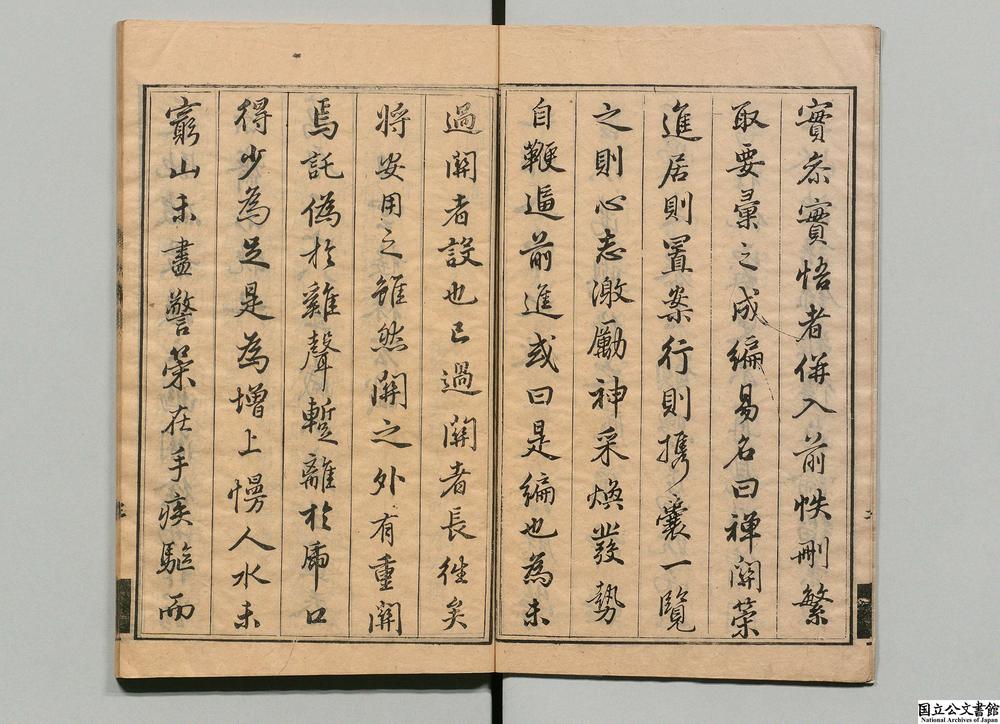 實叅實悟者併入前帙刪繁
取要彙之成編易名曰禪関䇿
進居則置案行則擕囊一覧
之則心志激勵神采煥發勢
自鞭逼前進或曰是編也為未
過関者設也已過関者長徃矣
将安用之雖然関之外有重関
焉託偽於雞聲暫離於虎口
得少為足是為增上慢人水未
窮山未盡警䇿在手疾驅而
国立公文書館
National Archives of Japan